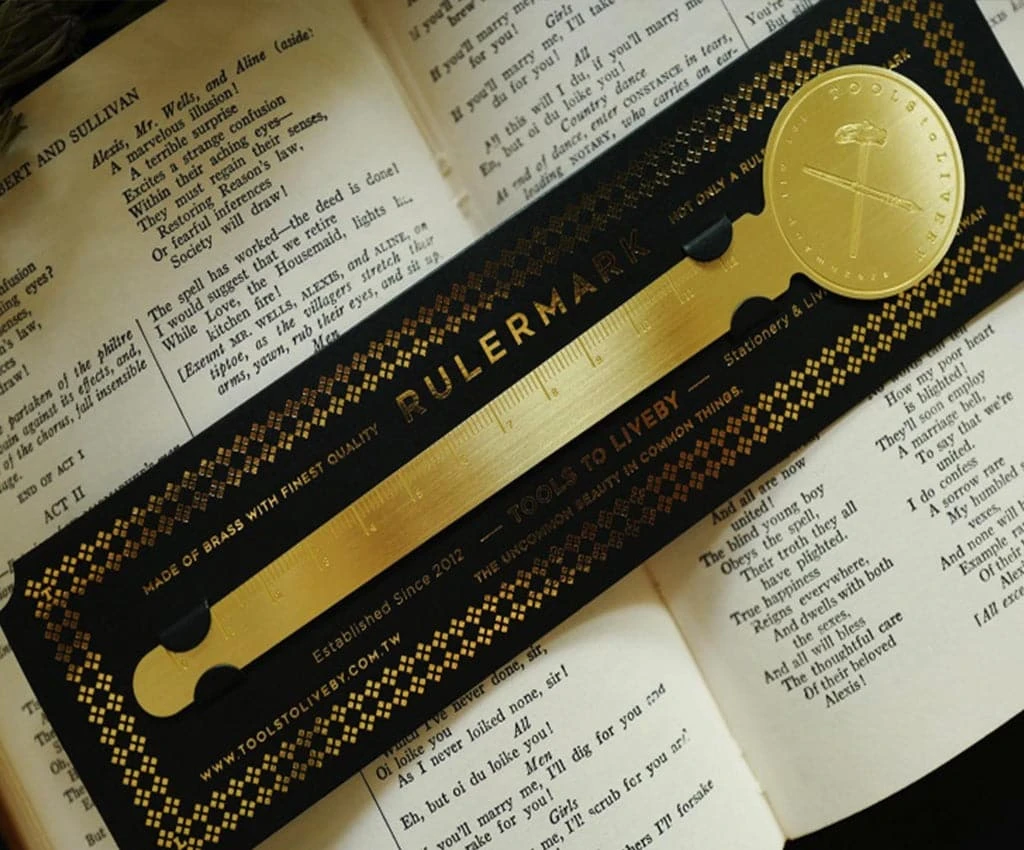 BERT AND SULLIVAN
Alexis, Mr. Wells, and Aline (aside)
A marvelous illusion!
A terrible surprise
Excites a strange confusion
Within their aching eyes—
They must regain their senses,
Restoring Reason's law,
Or fearful inferences
Society will draw!
The spell has worked—the deed is done!
I would suggest that we retire
While Love, the Housemaid, lights
kitchen fire!
[Exeunt MR. WELLS, ALEXIS, and ALINE, on
tiptoe, as the villagers stretch their
arms, yawn, rub their eyes, and sit up.
Men
nfusion
ing eyes?
senses,
n's law,
draw!
partaken of the philtre
against its effects, and,
of the chorus, fall insensible
END OF ACT I
ACT II
If you'll marry me
Girls
for you!
All
If you'll marry me, I'll
du for you!
All this will I do, if you'll marry me
Eh, but oi du loike you!
Country dance
At end of dance, enter CONSTANCE in tears,
leading NOTARY, who carries an ear-
MADE OF BRASS WITH FINEST QUALITY
RULERMARK
NOT ONLY A RUL
ARK
TOOLS to LIVEBY
1
2
3
4
5
6
7
8
9
Established Since 2012 — TOOLS TO LIVEBY — Stationery & Liv
THE UNCOMMON BEAUTY IN COMMON THINGS.
WWW.TOOLSTOLIVEBY.COM.TW
I've never done, sir,
Oi loike you
As I never loiked none, sir!
All
Eh, but oi du loike you!
Men
you'll marry me, I'll dig for you and
rake for you!
Girls
me, I'll scrub for you
I'll forsake
And all are now
united!
The blind young boy
Obeys the spell,
Their troth they all
have plighted.
True happiness
Reigns everywhere,
And dwells with both
the sexes,
And all will bless
The thoughtful care
Of their beloved
Alexis!
How my poor heart
is blighted!
They'll soon employ
A marriage bell,
To say that we're
united.
I do confess
A sorrow rare
My humbled
vexes,
And none will
Example
Of their